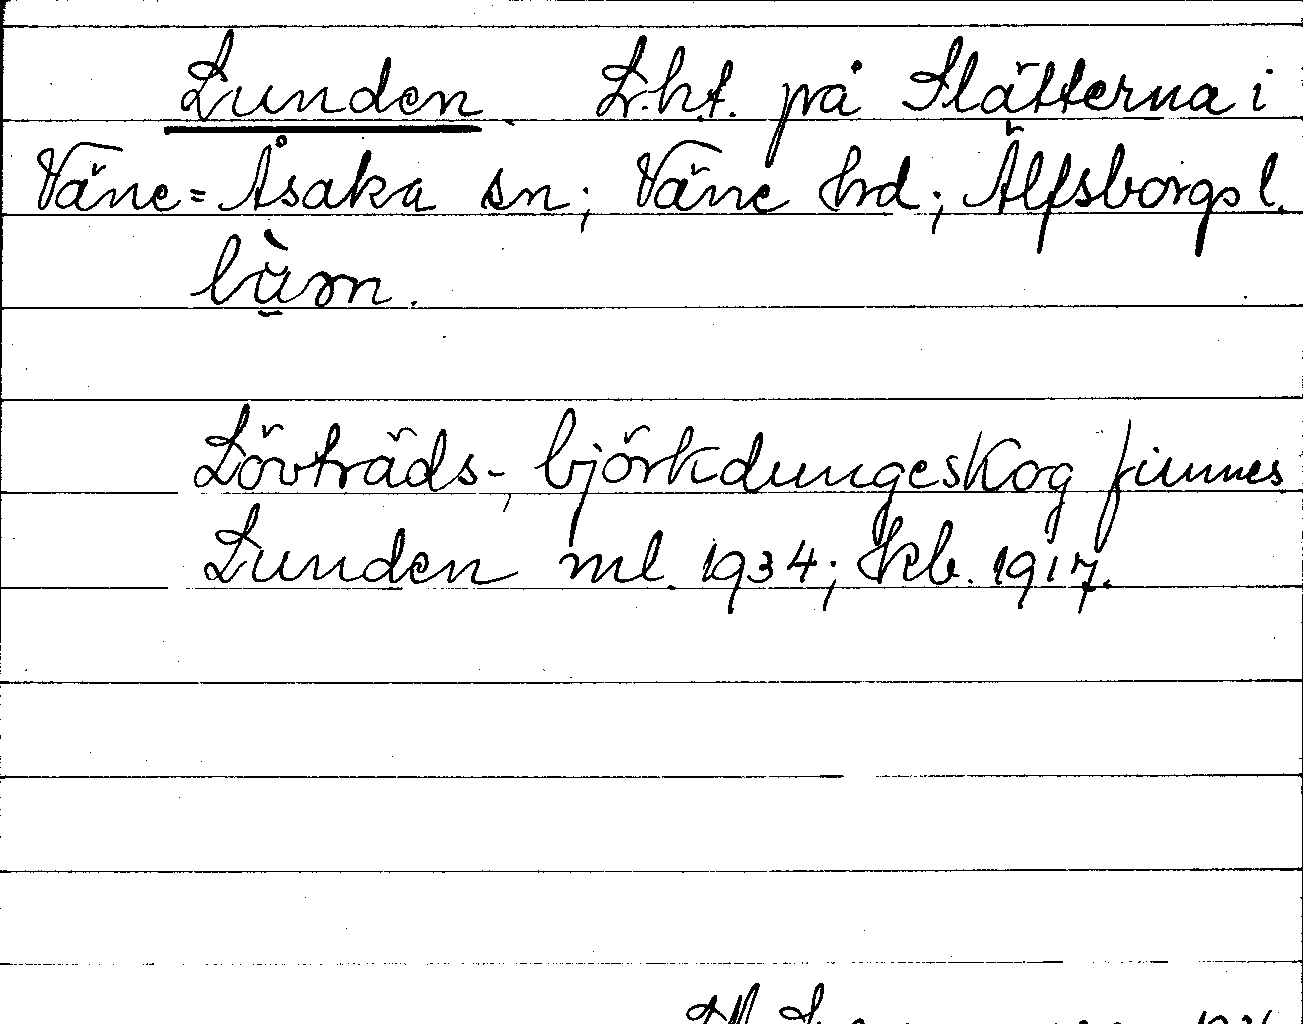 Lunden. L.ht. på Slätterna i
Väne=Åsaka sn; Väne hrd; Älfsborgs l.
Lövträds-, björkdungeskog finnes
Lunden ml. 1934; kb. 1917.